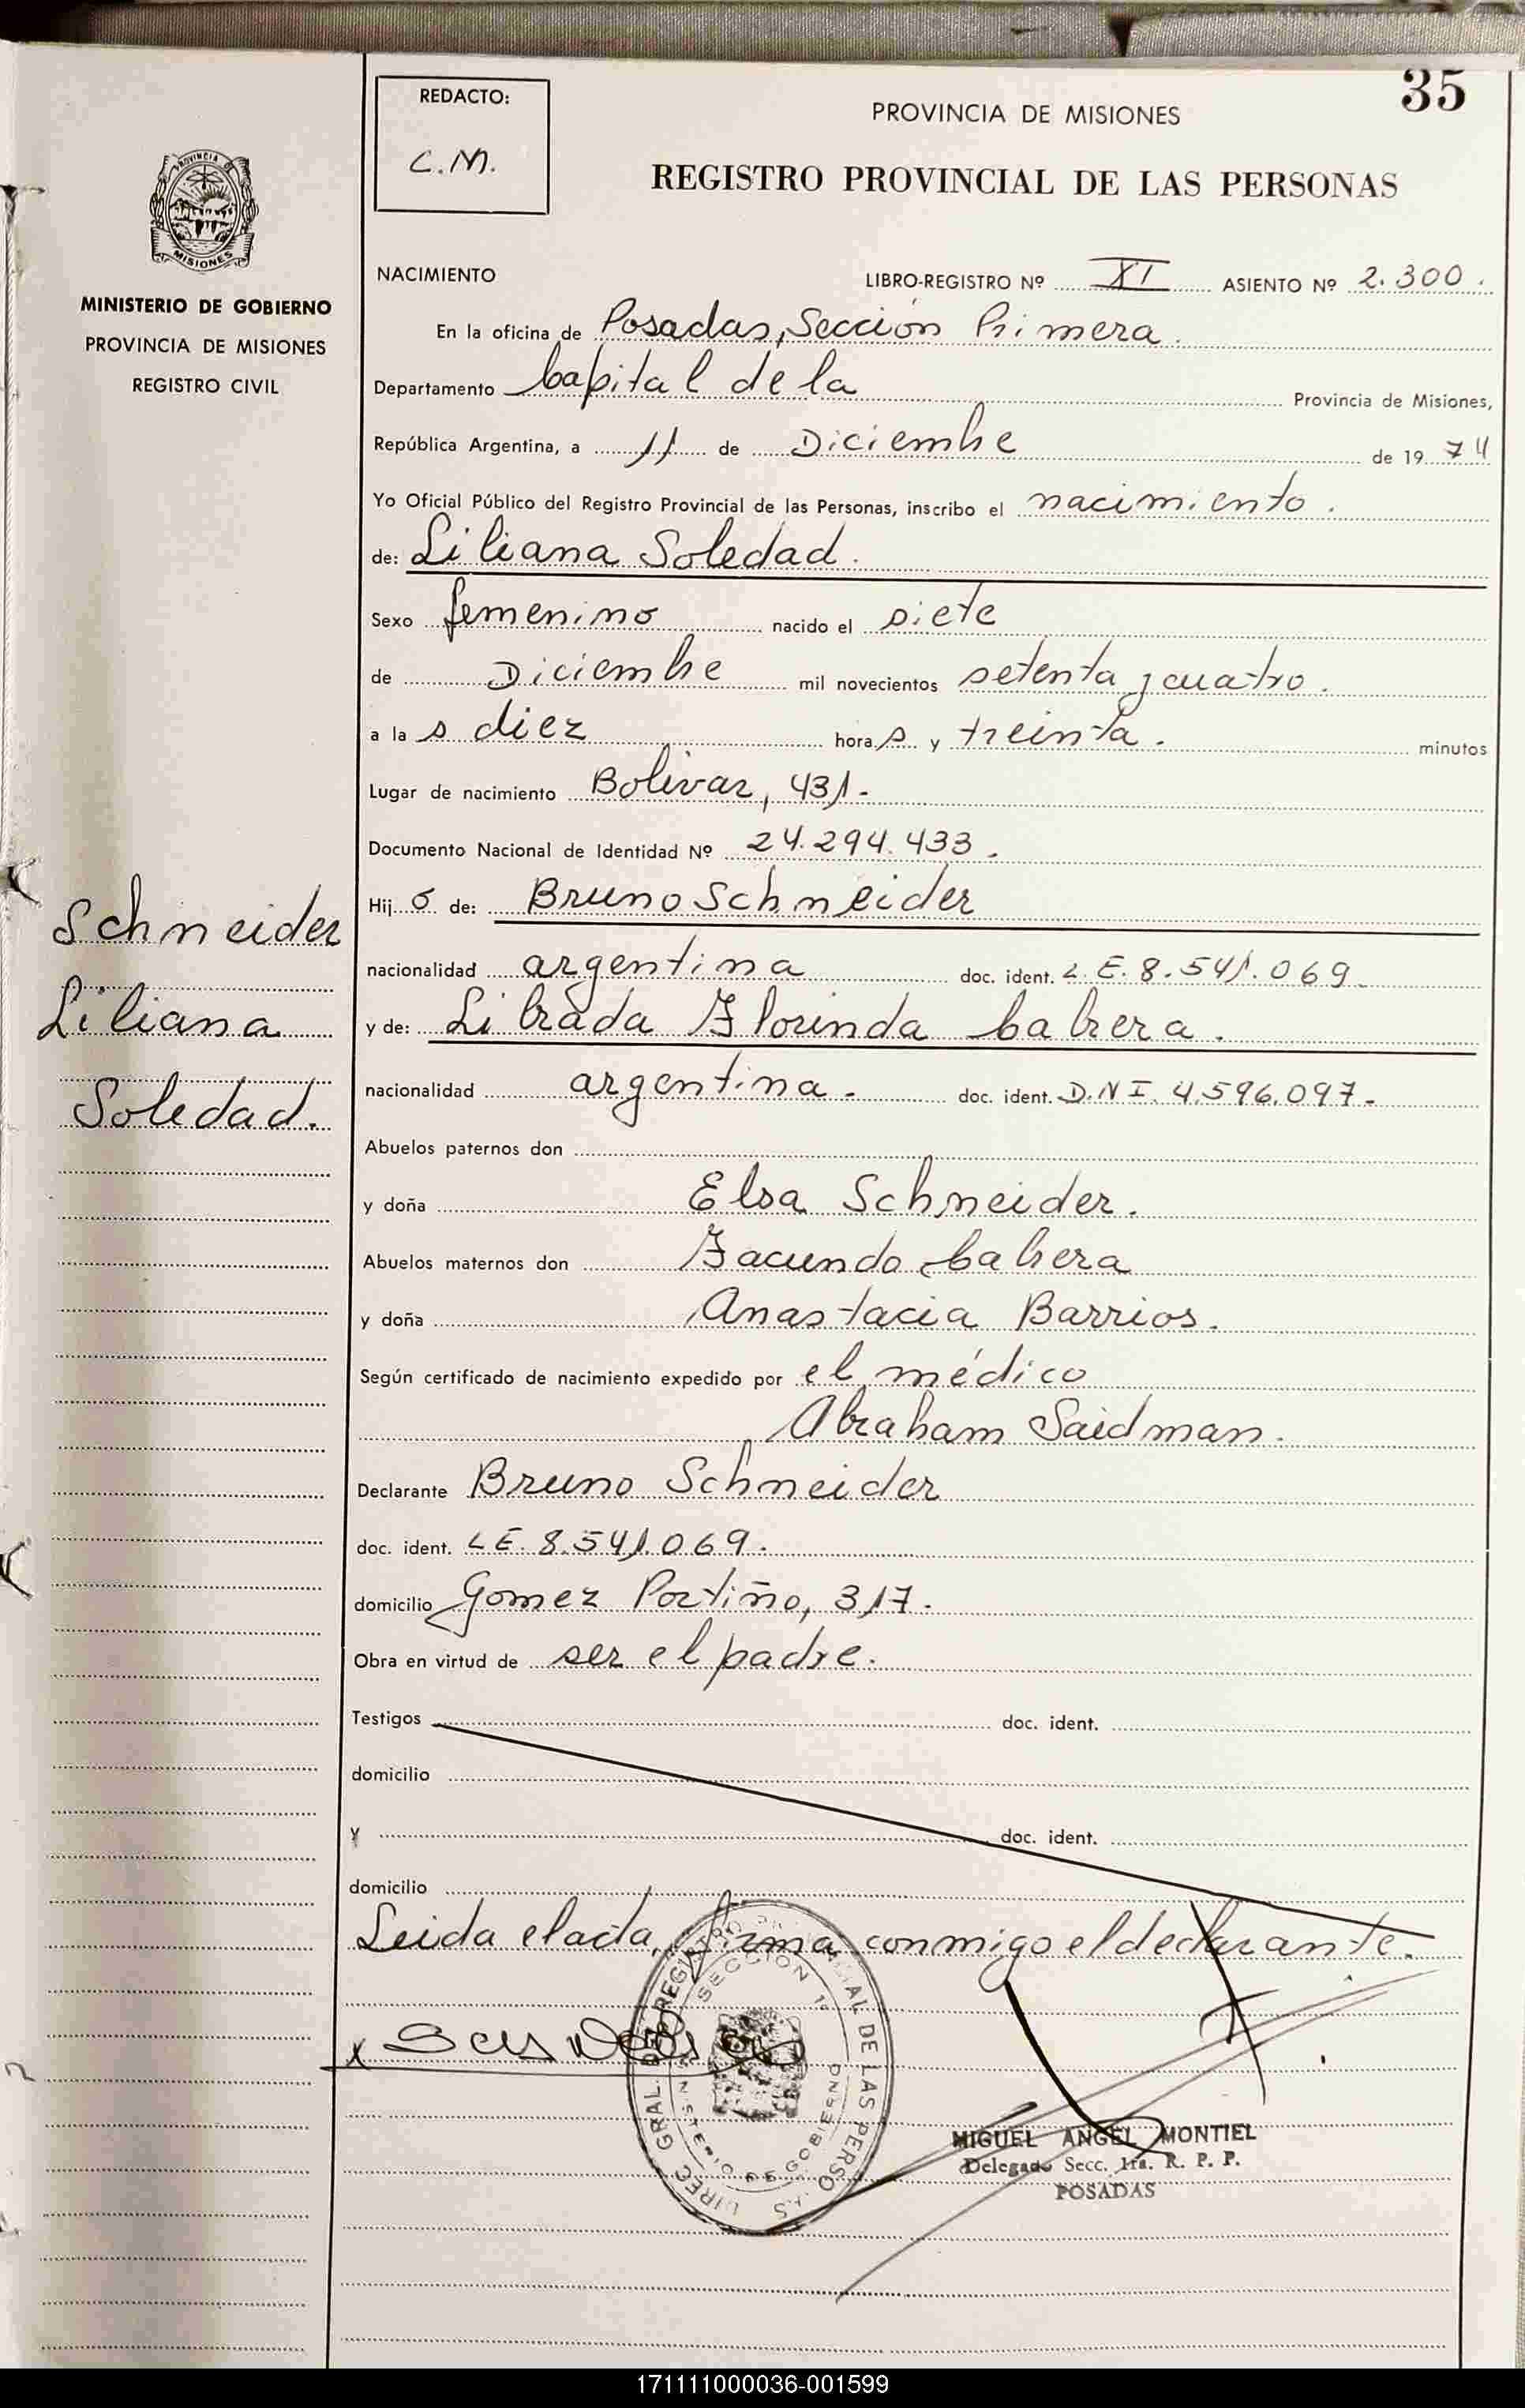 35
REDACTO:
C.M.
PROVINCIA DE MISIONES
REGISTRO PROVINCIAL DE LAS PERSONAS
PROVINCIA DE
MISIONES
MINISTERIO DE GOBIERNO
PROVINCIA DE MISIONES
REGISTRO CIVIL
NACIMIENTO LIBRO-REGISTRO Nº XI ASIENTO Nº 2.300.
En la oficina de Posadas, Sección Primera.
Departamento Capital de la Provincia de Misiones,
República Argentina, a 11 de Diciembre de 1974
Yo Oficial Público del Registro Provincial de las Personas, inscribo el nacimiento.
de: Liliana Soledad.
Sexo femenino nacido el siete
de Diciembre mil novecientos setenta y cuatro.
a la s diez hora s y treinta. minutos
Lugar de nacimiento Bolívar, 431.-
Documento Nacional de Identidad Nº 24.294.433.
Hij o de: Bruno Schneider
nacionalidad argentina doc. ident. L.E. 8.541.069.
y de: Librada Florinda Cabrera.
nacionalidad argentina.- doc. ident. D.N I. 4.596.097.-
Schneider
Liliana
Soledad.
Abuelos paternos don
y doña Elsa Schneider.
Abuelos maternos don Facundo Cabrera
y doña Anastacia Barrios.
Según certificado de nacimiento expedido por el médico
Abraham Saidman.
Declarante Bruno Schneider
doc. ident. L E. 8.541.069.
domicilio Gomez Portiño, 317.-
Obra en virtud de ser el padre.
Testigos doc. ident.
domicilio
y doc. ident.
domicilio
Leida el acta, firma conmigo el declarante.
DIREC. GRAL. DEL REGISTRO PROVINCIAL DE LAS PERSONAS
SECCION 1ª
MINISTERIO DE GOBIERNO
MIGUEL ANGEL MONTIEL
Delegado Secc. 1ra. R. P. P.
POSADAS
171111000036-001599